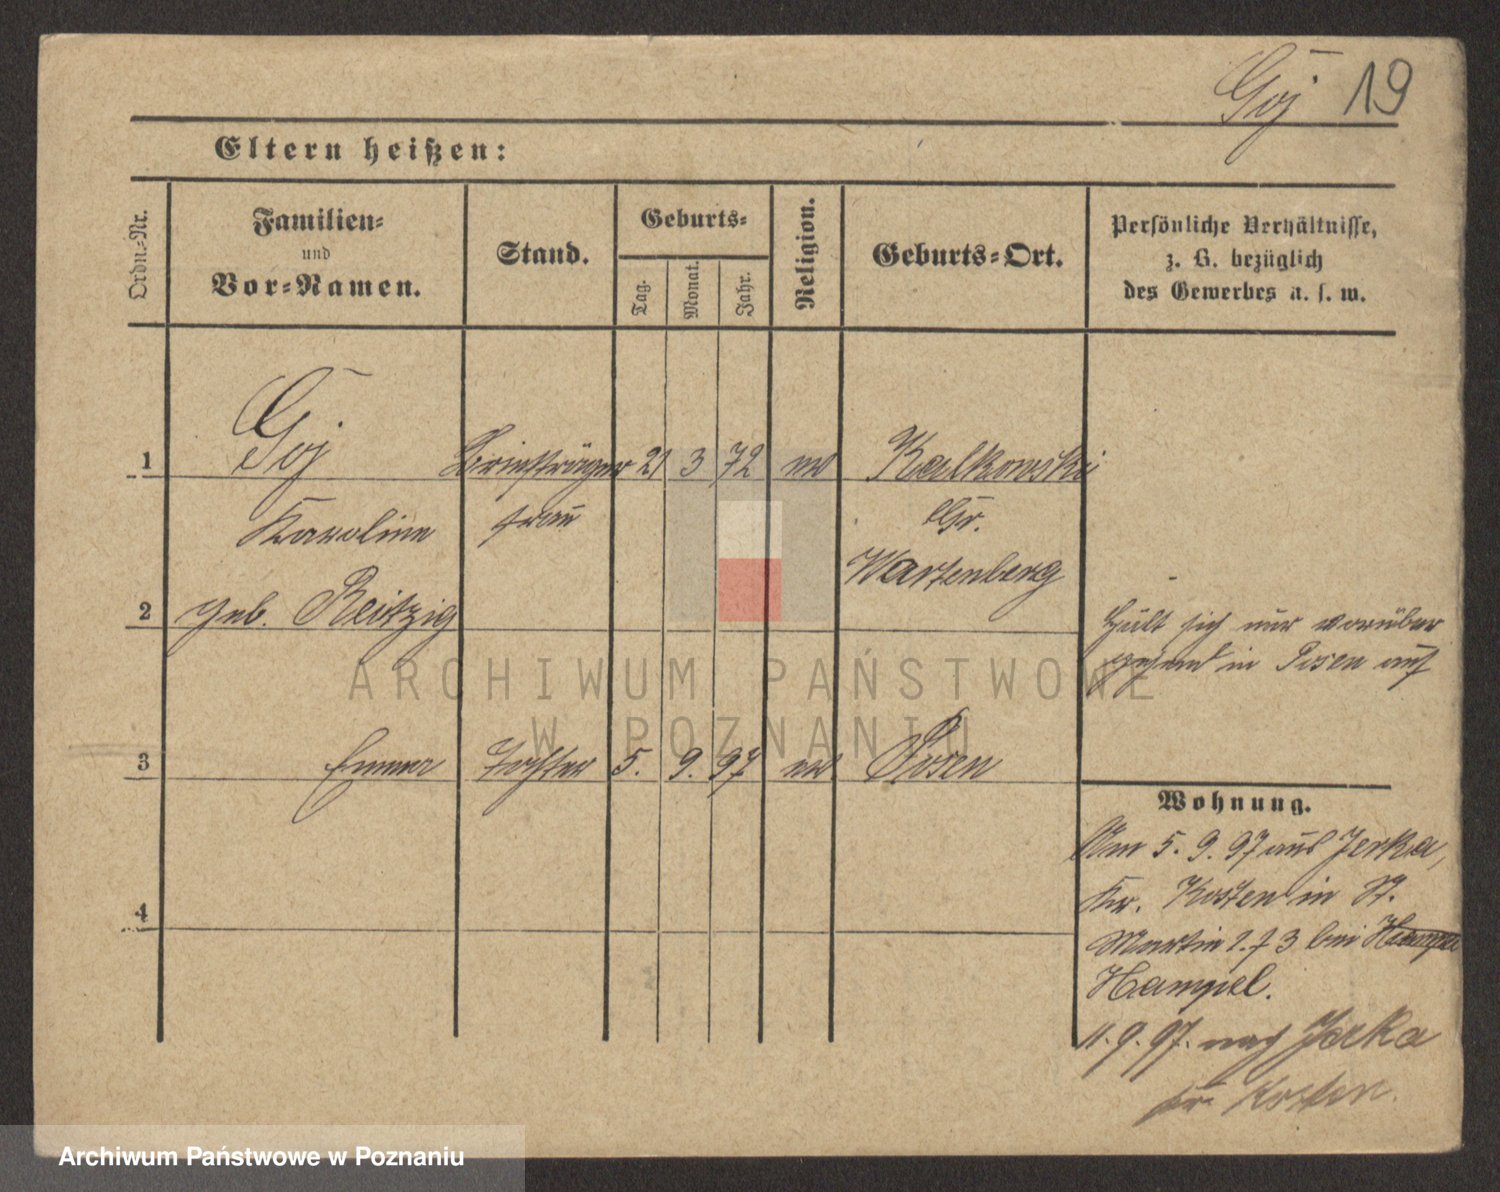 Goj 19
Eltern heißen:
Ordn=Nr.
Familien=
und
Vor=Namen.
Stand.
Geburts=
Tag.
Monat.
Jahr.
Religion.
Geburts=Ort.
Persönliche Verhältnisse,
z. B. bezüglich
des Gewerbes u. s. w.
1 Goj Briefträger 21 3 72 ev Kalkowski
Karoline frau Gr.
Wartenberg
2 geb. Reitzig
Hält sich nur vorüber
gehend in Posen auf
3 Emma Tochter 5. 9. 97 ev Posen
4
Wohnung.
Am 5. 9. 97 aus Jerka,
Kr. Kosten in St.
Martin 2. f 3 bei
Hampel.
11. 9. 97. nach Jerka
Kr. Kosten.
ARCHIWUM PAŃSTWOWE
W POZNANIU
Archiwum Państwowe w Poznaniu